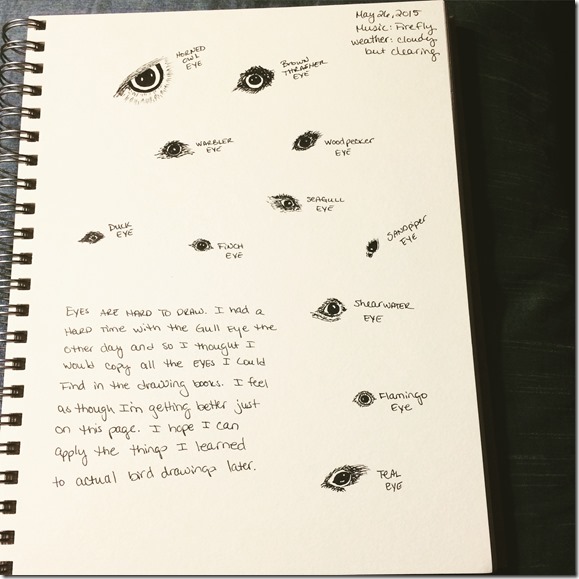 May 26, 2015
Music: Firefly
weather: cloudy
but clearing
HORNED
OWL
EYE
BROWN
THRASHER
EYE
WARBLER
EYE
Woodpecker
EYE
SEAGULL
EYE
DUCK
EYE
FINCH
EYE
SANDpiper
EYE
SHEARWATER
EYE
Flamingo
Eye
TEAL
EYE
EYES ARE HARD TO DRAW. I had a
HARD Time with the Gull Eye the
other day and so I thought I
would copy all the EYES I could
Find in the drawing books. I feel
as though I'm getting better just
on this page. I hope I can
apply the things I learned
to actual bird drawings later.